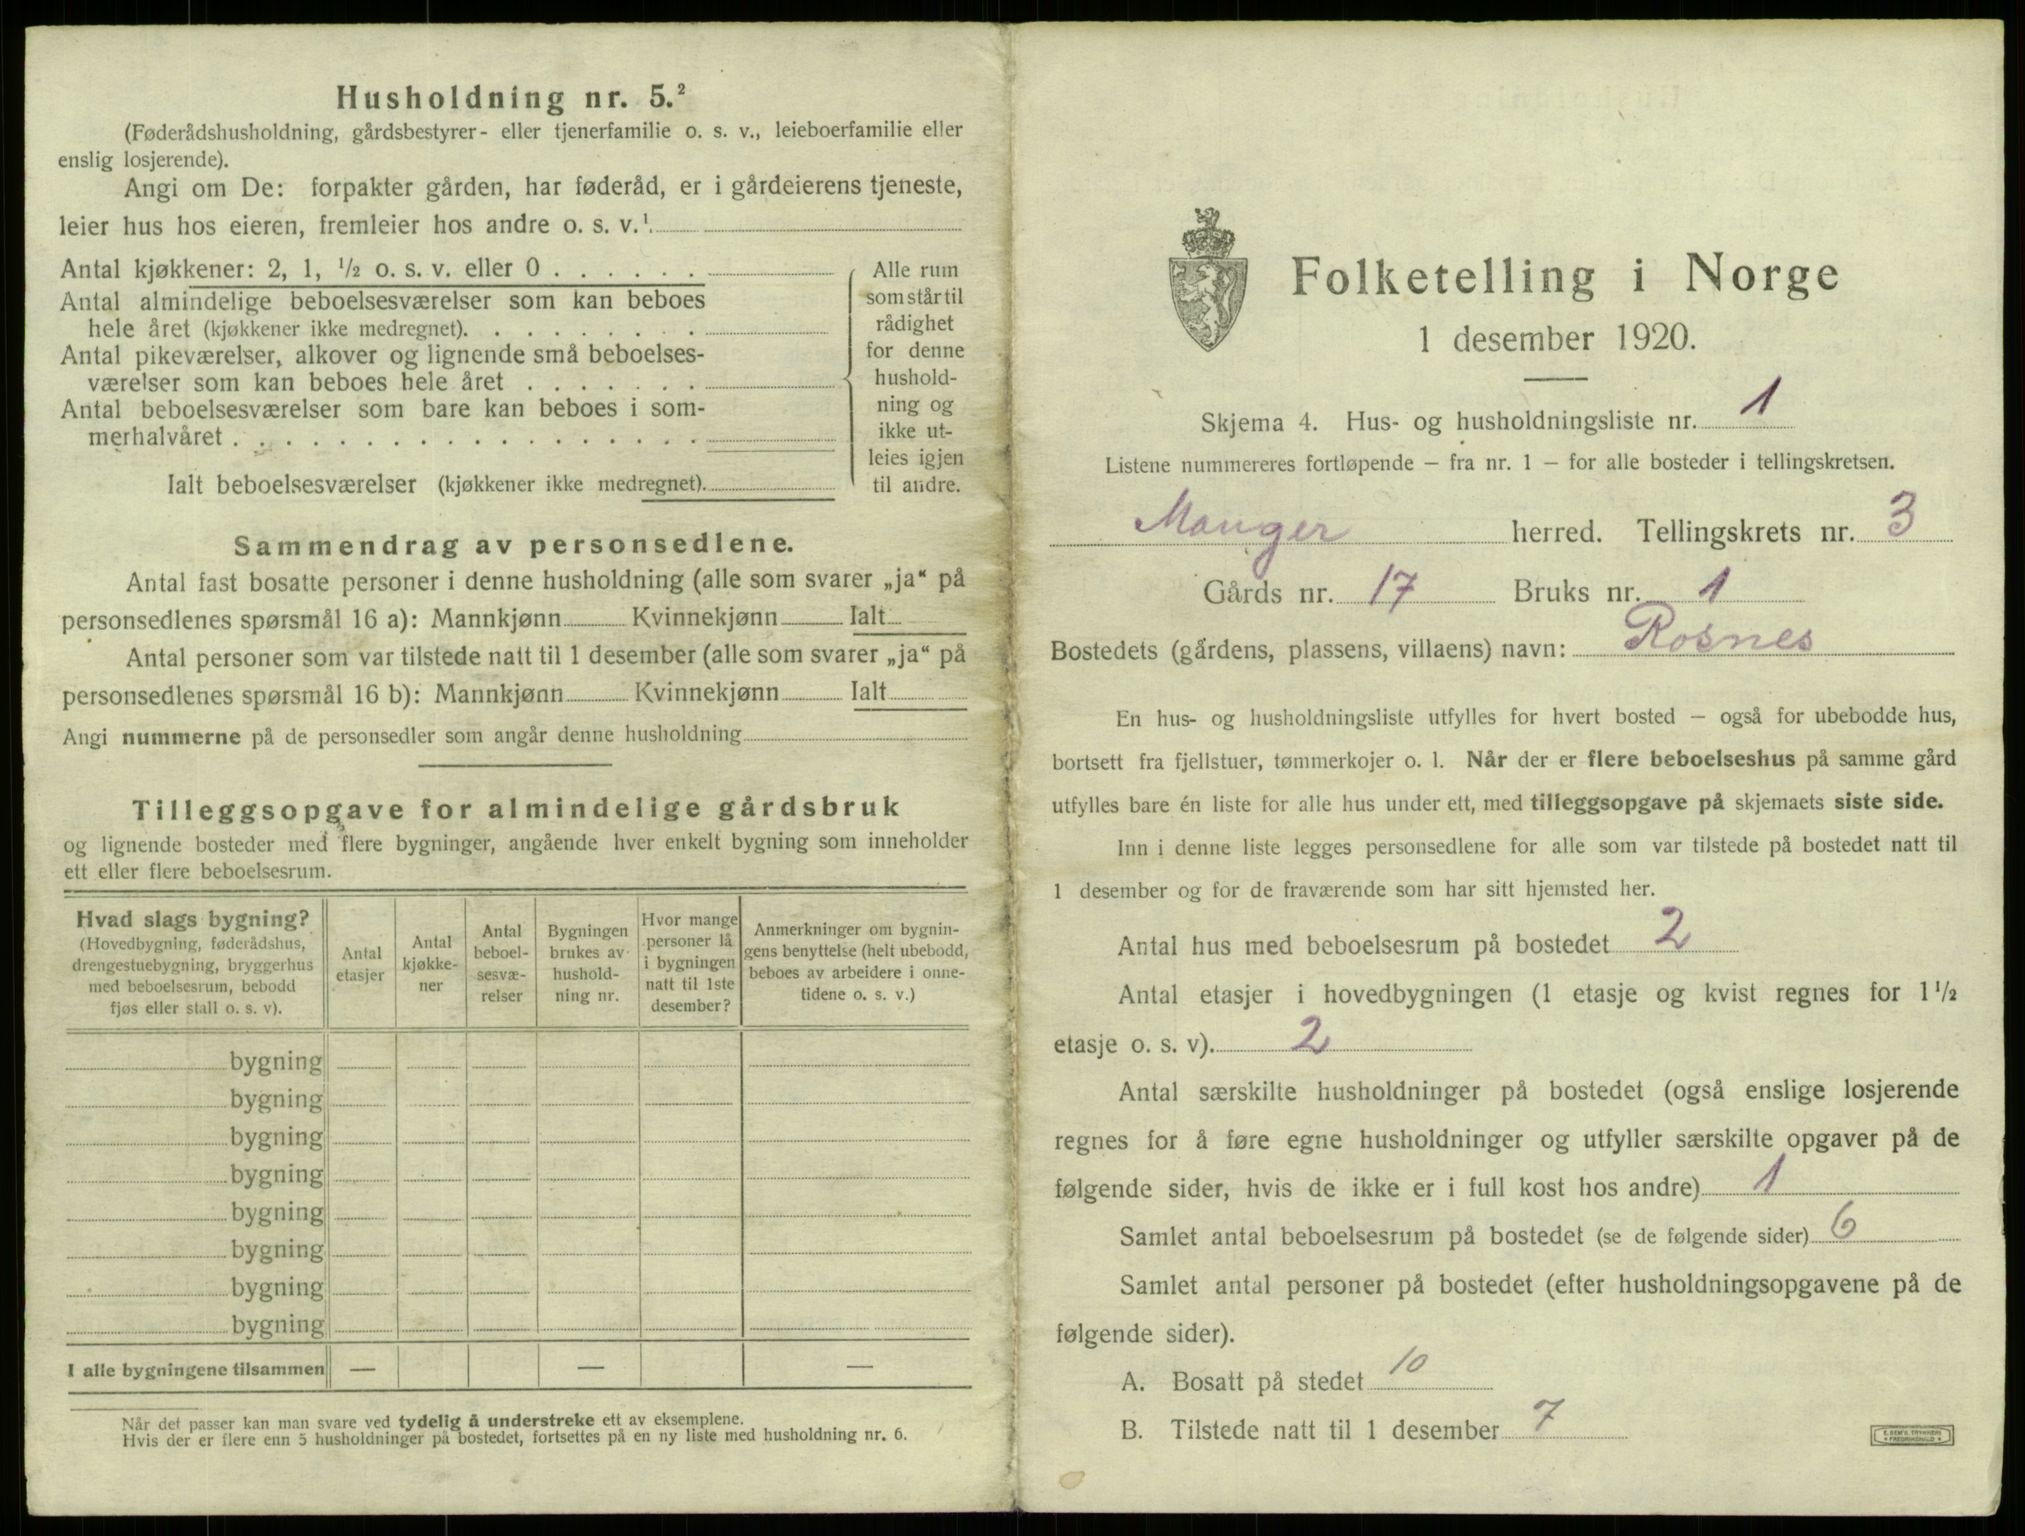 Husholdning nr. 5.²
(Føderådshusholdning, gårdsbestyrer- eller tjenerfamilie o. s. v., leieboerfamilie eller
enslig losjerende).
Angi om De: forpakter gården, har føderåd, er i gårdeierens tjeneste,
leier hus hos eieren, fremleier hos andre o. s. v.¹
Antal kjøkkener: 2, 1, ½ o. s. v. eller 0 . . . . . .
Antal almindelige beboelsesværelser som kan beboes
hele året (kjøkkener ikke medregnet). . . . . . . . .
Antal pikeværelser, alkover og lignende små beboelses-
værelser som kan beboes hele året . . . . . . .
Antal beboelsesværelser som bare kan beboes i som-
merhalvåret . . . . . . . . . . . . . . . . . .
Ialt beboelsesværelser (kjøkkener ikke medregnet).
Alle rum
som står til
rådighet
for denne
hushold-
ning og
ikke ut-
leies igjen
til andre.
Sammendrag av personsedlene.
Antal fast bosatte personer i denne husholdning (alle som svarer „ja“ på
personsedlenes spørsmål 16 a): Mannkjønn Kvinnekjønn Ialt
Antal personer som var tilstede natt til 1 desember (alle som svarer „ja“ på
personsedlenes spørsmål 16 b): Mannkjønn Kvinnekjønn Ialt
Angi nummerne på de personsedler som angår denne husholdning
Tilleggsopgave for almindelige gårdsbruk
og lignende bosteder med flere bygninger, angående hver enkelt bygning som inneholder
ett eller flere beboelsesrum.
Hvad slags bygning?
(Hovedbygning, føderådshus,
drengestuebygning, bryggerhus
med beboelsesrum, bebodd
fjøs eller stall o. s. v).
Antal
etasjer
Antal
kjøkke-
ner
Antal
beboel-
sesvæ-
relser
Bygningen
brukes av
hushold-
ning nr.
Hvor mange
personer lå
i bygningen
natt til 1ste
desember?
Anmerkninger om bygnin-
gens benyttelse (helt ubebodd,
beboes av arbeidere i onne-
tidene o. s. v.)
bygning
bygning
bygning
bygning
bygning
bygning
bygning
bygning
I alle bygningene tilsammen — — —
Når det passer kan man svare ved tydelig å understreke ett av eksemplene.
Hvis der er flere enn 5 husholdninger på bostedet, fortsettes på en ny liste med husholdning nr. 6.
Folketelling i Norge
1 desember 1920.
Skjema 4. Hus- og husholdningsliste nr. 1
Listene nummereres fortløpende — fra nr. 1 — for alle bosteder i tellingskretsen.
Manger herred. Tellingskrets nr. 3
Gårds nr. 17 Bruks nr. 1
Bostedets (gårdens, plassens, villaens) navn: Rosnes
En hus- og husholdningsliste utfylles for hvert bosted — også for ubebodde hus,
bortsett fra fjellstuer, tømmerkojer o. l. Når der er flere beboelseshus på samme gård
utfylles bare én liste for alle hus under ett, med tilleggsopgave på skjemaets siste side.
Inn i denne liste legges personsedlene for alle som var tilstede på bostedet natt til
1 desember og for de fraværende som har sitt hjemsted her.
Antal hus med beboelsesrum på bostedet 2
Antal etasjer i hovedbygningen (1 etasje og kvist regnes for 1½
etasje o. s. v). 2
Antal særskilte husholdninger på bostedet (også enslige losjerende
regnes for å føre egne husholdninger og utfyller særskilte opgaver på de
følgende sider, hvis de ikke er i full kost hos andre) 1
Samlet antal beboelsesrum på bostedet (se de følgende sider) 6
Samlet antal personer på bostedet (efter husholdningsopgavene på de
følgende sider).
A. Bosatt på stedet 10
B. Tilstede natt til 1 desember 7